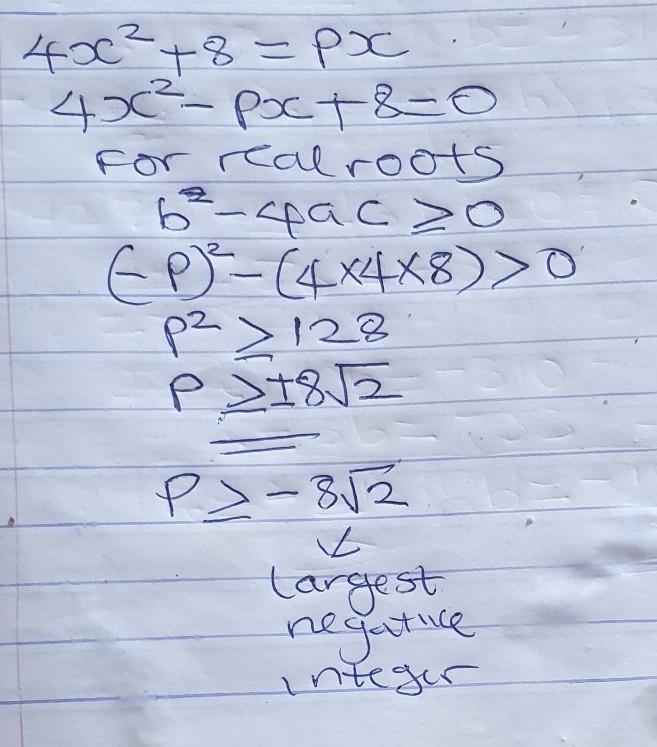 4x² + 8 = px
4x² - px + 8 = 0
For real roots
b² - 4ac ≥ 0
(-p)² - (4×4×8) > 0
p² ≥ 128
p ≥ ±8√2
p ≥ -8√2
↓
largest
negative
integer